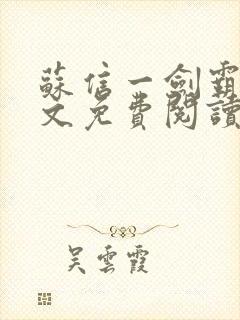 蘇信一劍霸
文免費閱讀
吳雲霞